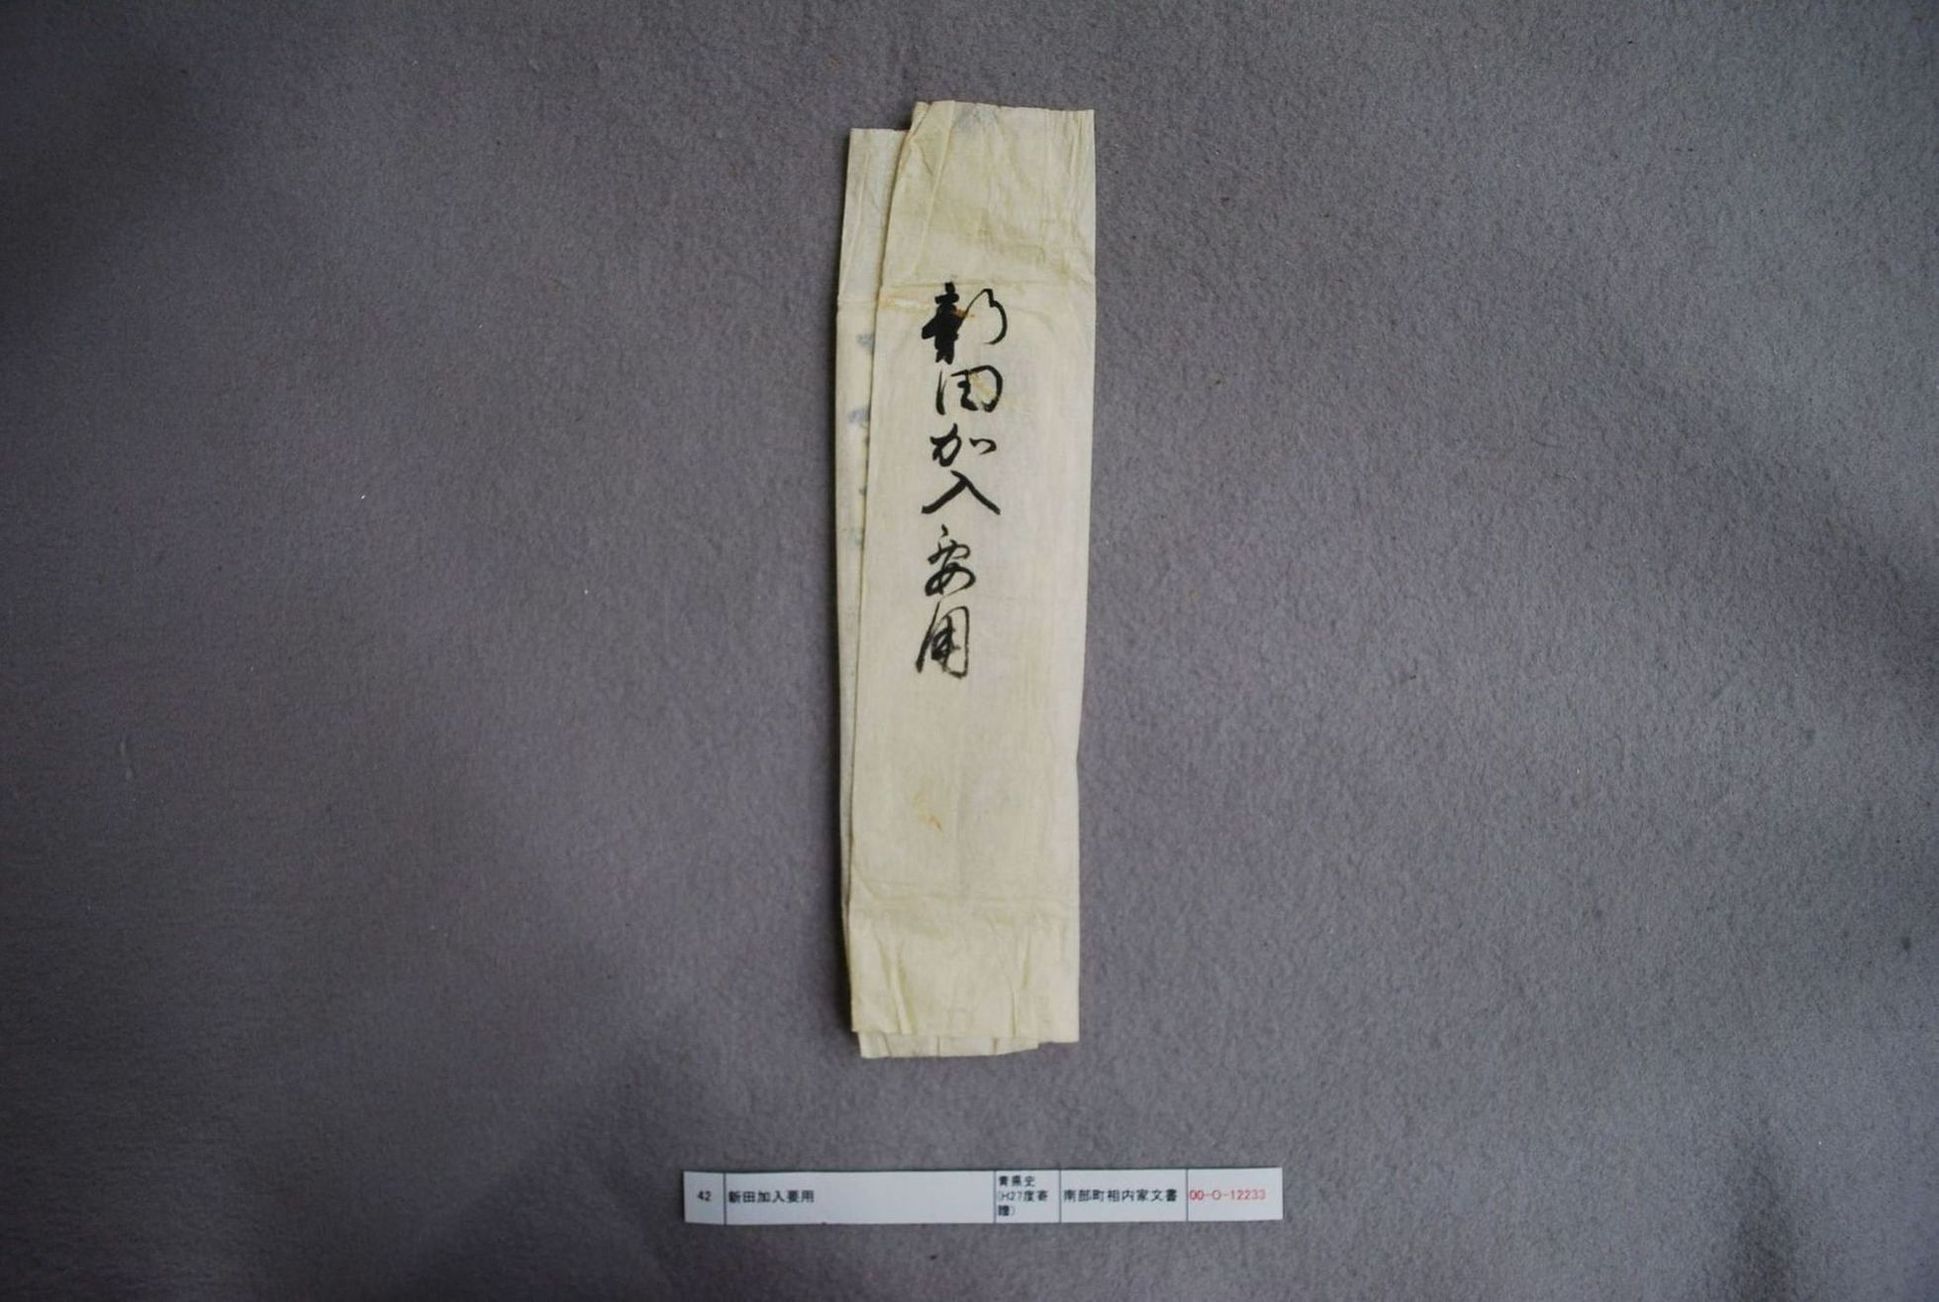 新田加入要用
42
新田加入要用
青県史
(H27度寄
贈)
南部町相内家文書
00-O-12233